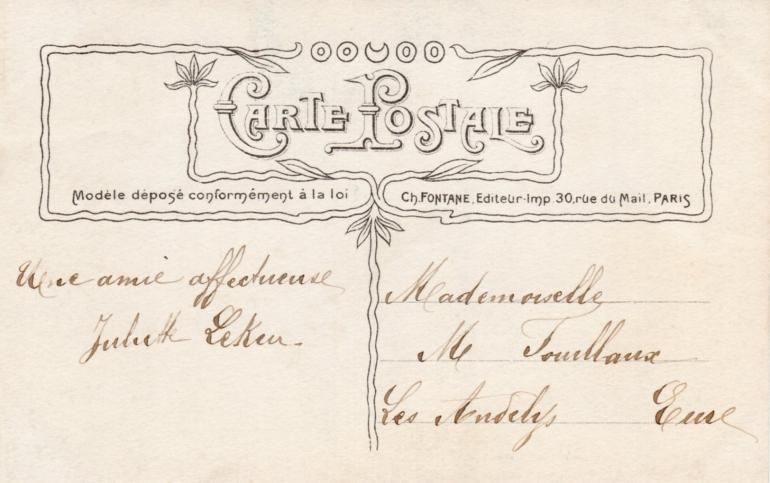 CARTE POSTALE
Modèle déposé conformément à la loi
Ch. FONTANE, Editeur-Imp. 30, rue du Mail, PARIS
Une amie affectueuse
Juliette
Mademoiselle
M
Les Andelys Eure